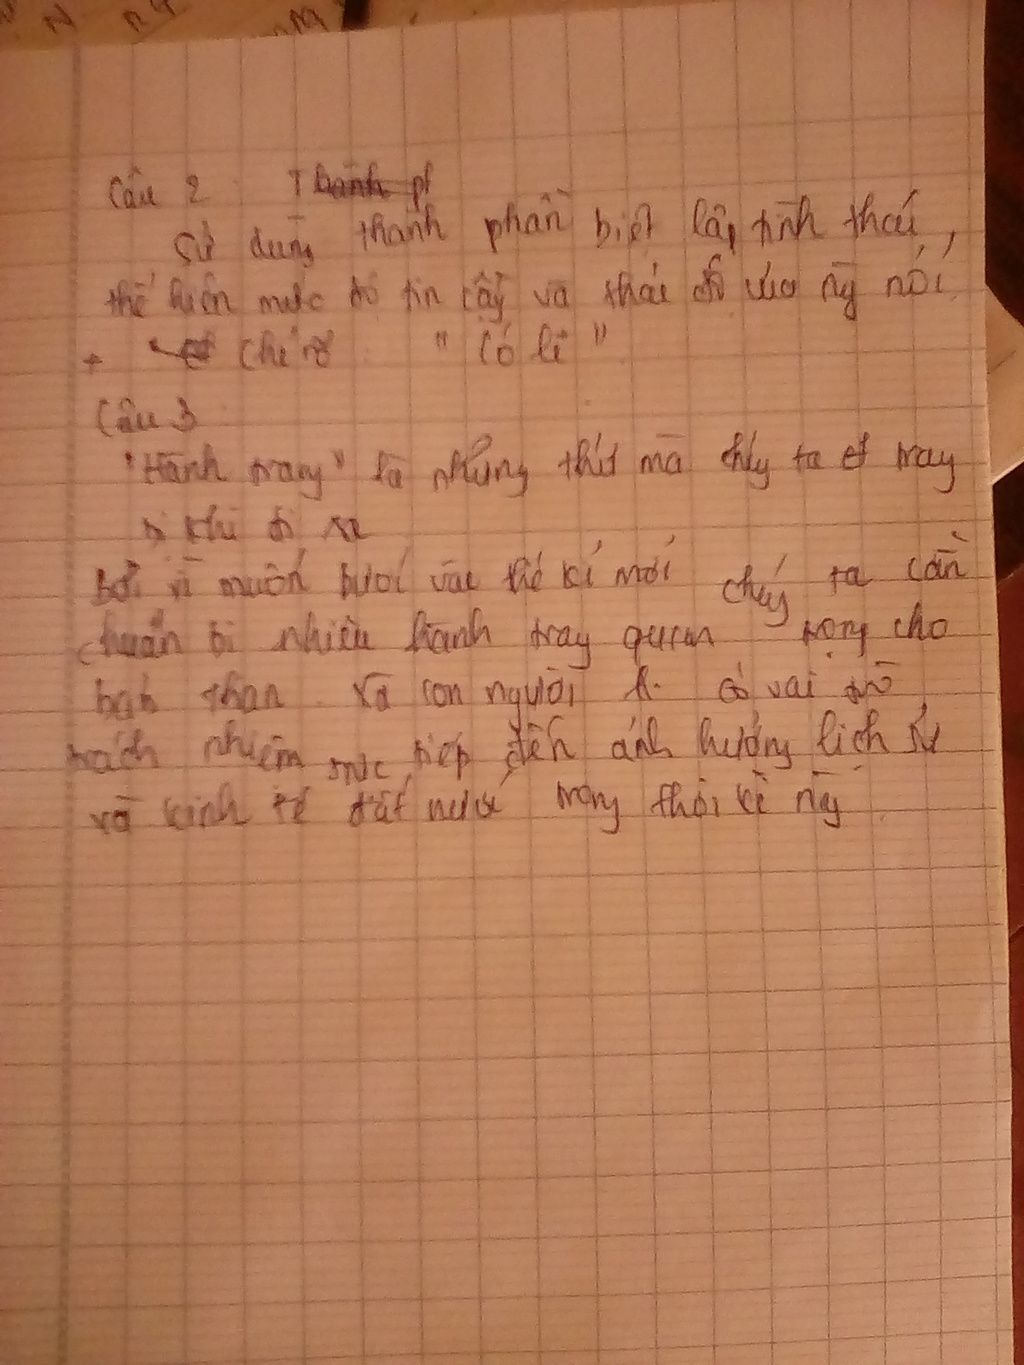 Câu 2
Sử dụng thành phần biệt lập tình thái,
thể hiện mức độ tin cậy và thái độ của ng nói
+ chỉ rõ " Có lẽ "
Câu 3
"Hành trang" là những thứ mà chúng ta trang
bị khi đi xa
Bởi vì muốn bước vào thế kỉ mới chúng ta cần
chuẩn bị nhiều hành trang quan trọng cho
bản thân và con người có vai trò
trách nhiệm trực tiếp đến ảnh hưởng lịch sử
và kinh tế đất nước trong thời kì này